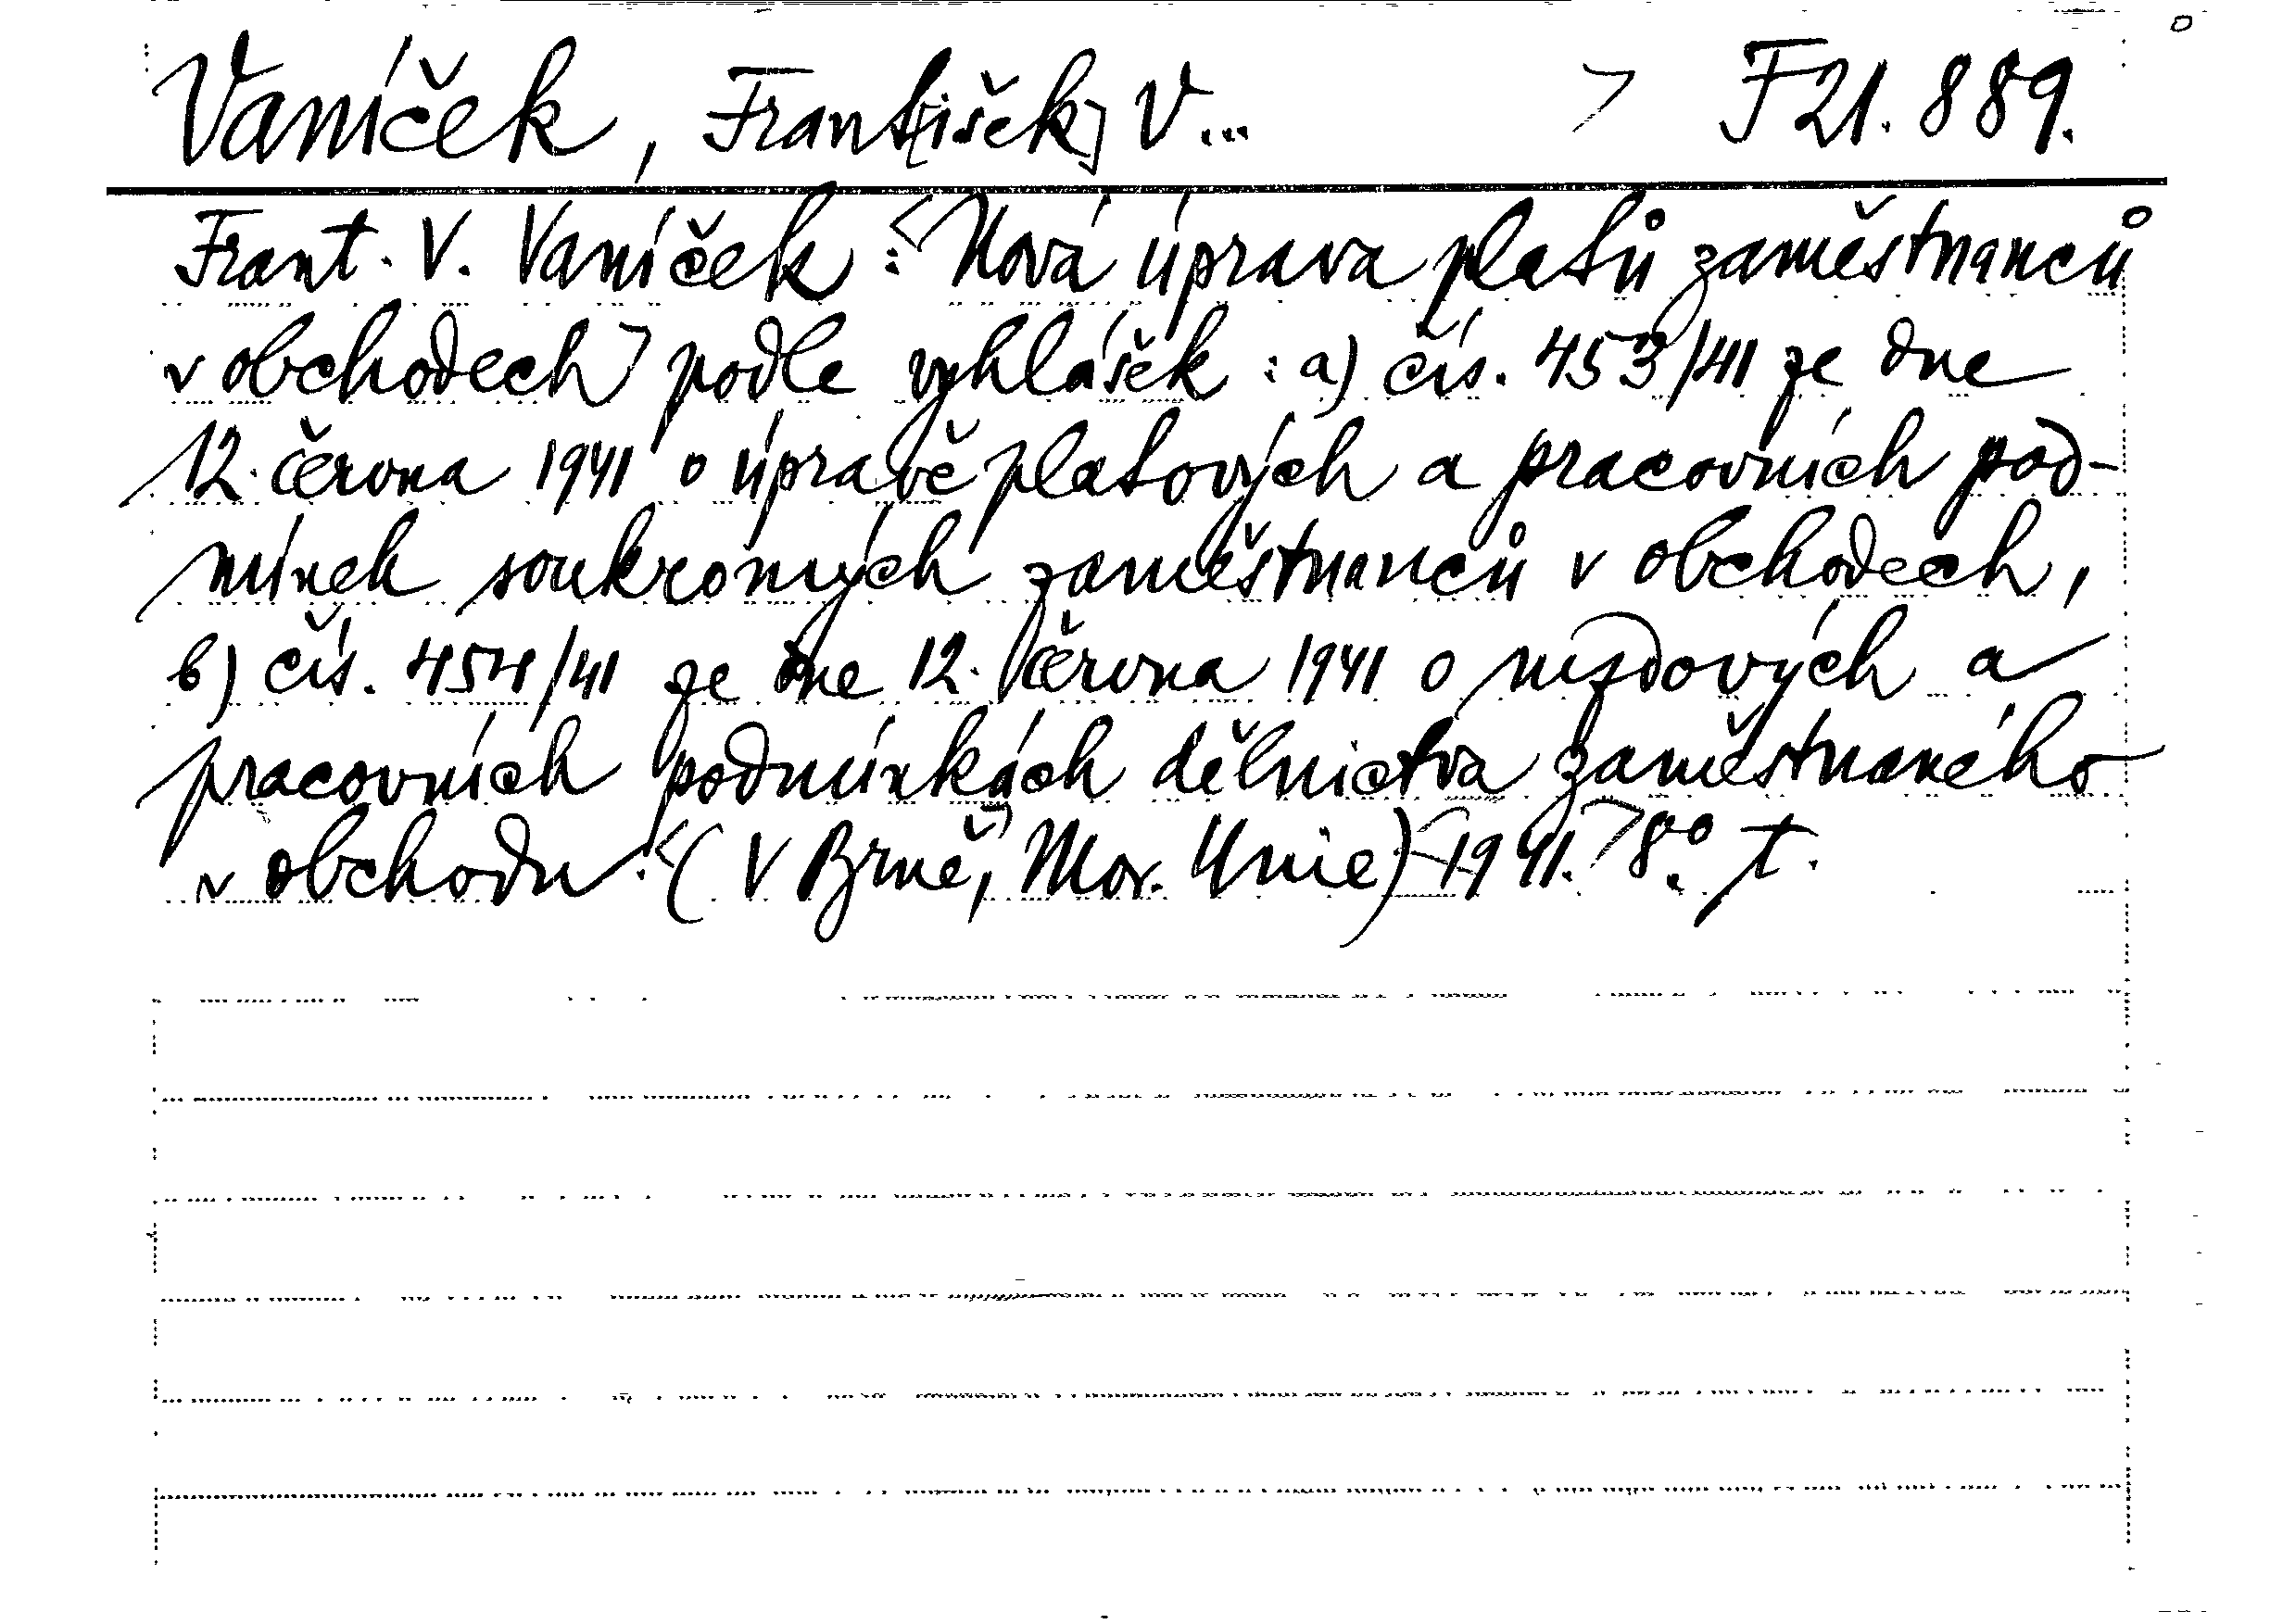 Vaníček, Frant[išek] V... F 21.889.
Frant. V. Vaníček: Nová úprava platů zaměstnanců
v obchodech podle vyhlášek: a) čís. 453/41 ze dne
12. června 1941 o úpravě platových a pracovních pod-
mínek soukromých zaměstnanců v obchodech,
b) čís. 454/41 ze dne 12. června 1941 o mzdových a
pracovních podmínkách dělnictva zaměstnaného
v obchodu. (V Brně, Mor. Unie) 1941. 8°. t.